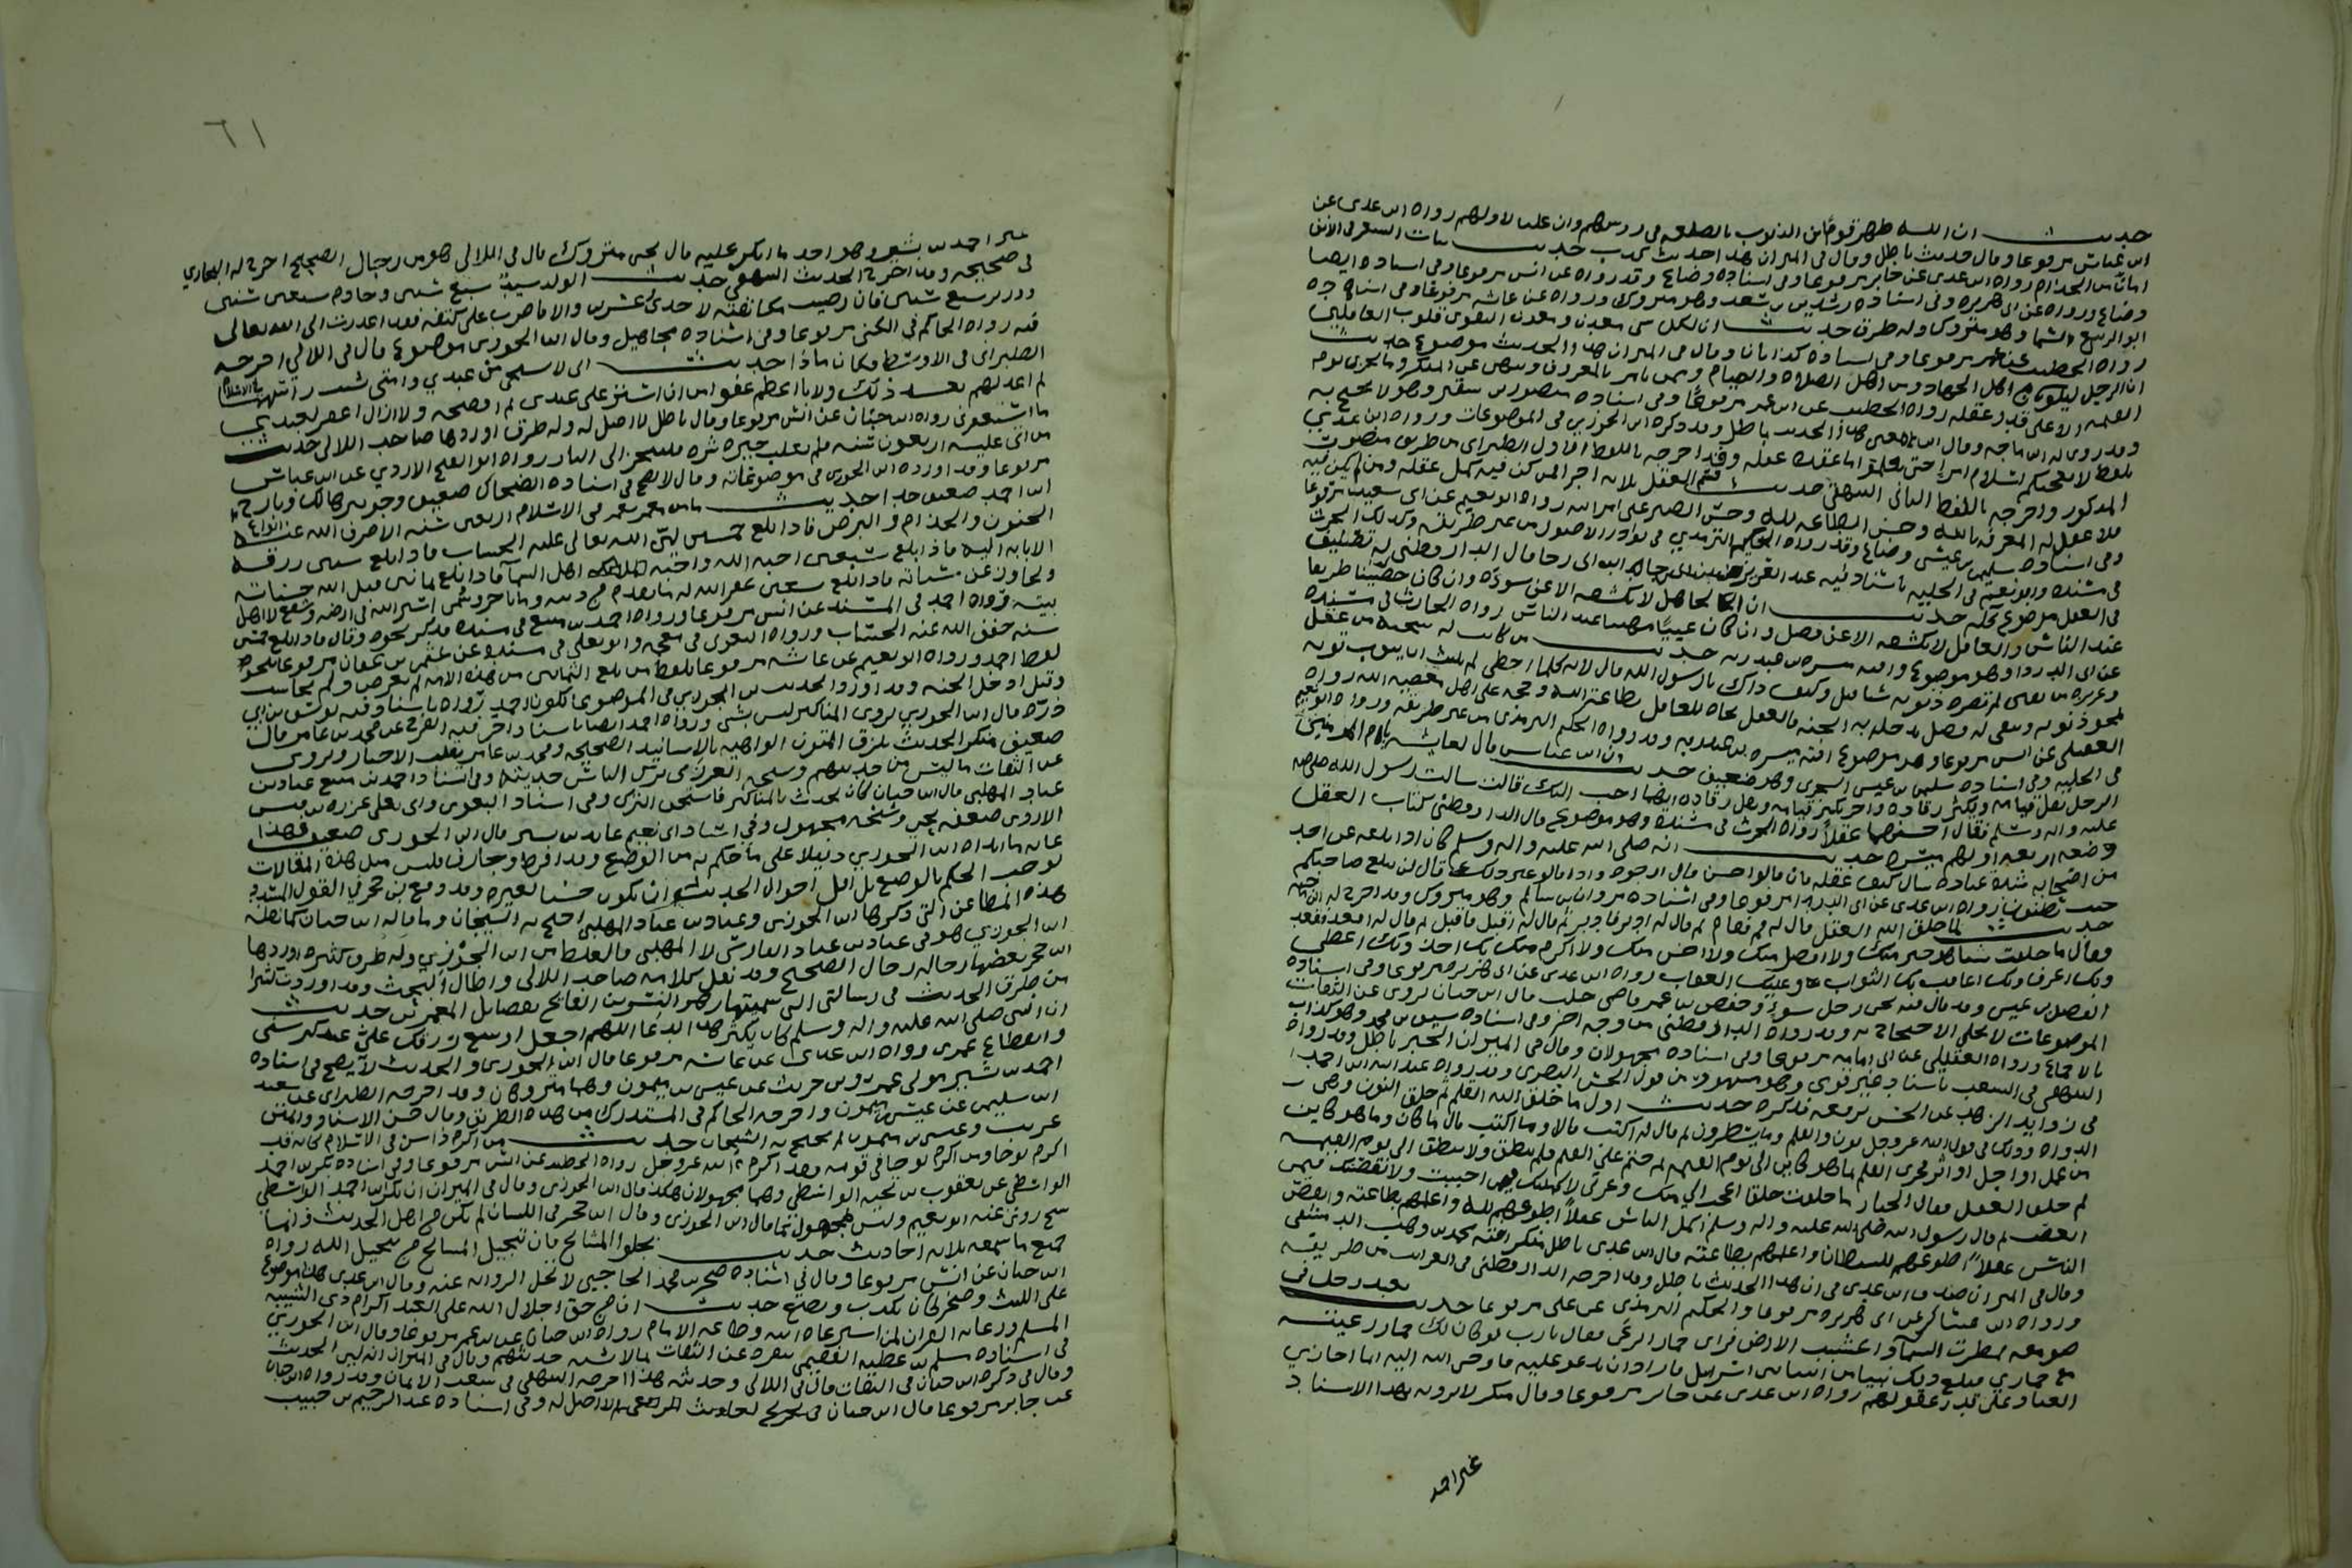 حديث ان الله طهر قوما من الذنوب بالصلعة في رؤسهم وان عليا لاولهم رواه ابن عدى عن
ابن عباس مرفوعا وقال حديث باطل وقال في الميزان هذا حديث كذب حديث نبات الشعر في الانف
امان من الجذام رواه ابن عدى عن جابر مرفوعا وفي اسناده وضاع وقد رواه عن انس مرفوعا وفي اسناده ايضا
وضاع ورواه عن ابي هريرة وفي اسناده رشدين بن سعد وهو متروك ورواه عن عائشه مرفوعا وفي اسناده
ابو الربيع السمان وهو متروك وله طرق حديث ان لكل شى معدن ومعدن التقوى قلوب العاقلين
رواه الخطيب عن عمر مرفوعا وفي اسناده كذابان وقال في الميزان هذا الحديث موضوع حديث
ان الرجل ليكون من اهل الجهاد ومن اهل الصلاة والصيام وممن يامر بالمعروف وينهى عن المنكر وما يجزى يوم
القيمه الا على قدر عقله رواه الخطيب عن ابن عمر مرفوعا وفي اسناده منصور بن سقير وهو لا يحتج به
وقد روى له ابن ماجه وقال ابن معين هذا الحديث باطل وقد ذكره ابن الجوزي في الموضوعات ورواه ابن عدي
بلفظ لا يعجبكم اسلام امرء حتى تعلموا ما عقدة عقله وقد اخرجه باللفظ الاول الطبراني من طريق منصور
المذكور واخرجه باللفظ الثاني البيهقي حديث قسم العقل ثلاثه اجزا فمن كن فيه كمل عقله ومن لم يكن فيه
فلا عقل له المعرفه بالله وحسن الطاعه لله وحسن الصبر على امر الله رواه ابو نعيم عن ابي سعيد مرفوعا
وفي اسناده سليمن بن عيسى وضاع وقد رواه الحكيم الترمذي في نوادر الاصول من غير طريقه وكذلك الحرث
في مسنده وابو نعيم في الحليه باسناد فيه عبد العزيز بن ابي رجا قال الدارقطني له تصنيف
في العقل موضوع كله حديث ان الجاهل لا تكشفه الا عن سوءة وان كان حصيفا ظريفا
عند الناس والعاقل لا تكشفه الا عن فضل وان كان عييا مهينا عند الناس رواه الحارث في مسنده
عن ابي الدرداء وهو موضوع وافته ميسرة بن عبد ربه حديث من كانت له سجية من عقل
وغريزة من يقين لم تضره ذنوبه شيا قيل وكيف ذاك يا رسول الله قال لانه كلما اخطى لم يلبث ان يتوب توبه
تمحو ذنوبه ويبقى له فضل يدخل به الجنه فالعقل نجاه للعامل بطاعة الله وحجه على اهل معصيه الله رواه
العقيلي عن انس مرفوعا وهو موضوع افته ميسره بن عبد ربه وقد رواه الحكيم الترمذي من غير طريقه ورواه ابو نعيم
في الحليه وفي اسناده سليمن بن عيسى السجزي وهو ضعيف حديث ان ابن عباس قال لعايشه يا ام المومنين
الرجل يقل قيامه ويكثر رقاده واخر يكثر قيامه ويقل رقاده ايهما احب اليك قالت سالت رسول الله صلى الله
عليه واله وسلم فقال احسنهما عقلا رواه الحرث في مسنده وهو موضوع قال الدارقطني كتاب العقل
وضعه اربعه اولهم ميسرة حديث انه صلى الله عليه واله وسلم كان اذا بلغه عن احد
من اصحابه شدة عباده سال كيف عقله فان قالوا حسن قال ارجوه واذا قالوا غير ذلك قال لن يبلغ صاحبكم
حيث تظنون رواه ابن عدى عن ابي الدرداء مرفوعا وفي اسناده مروان بن سالم وهو متروك وقد اخرج له ابن ماجه
حديث لما خلق الله العقل قال له قم فقام ثم قال له ادبر فادبر ثم قال له اقبل فاقبل ثم قال له اقعد فقعد
وقال ما خلقت شيا هو خير منك ولا افضل منك ولا احسن منك ولا اكرم منك بك اخذ وبك اعطي
وبك اعرف وبك اعاقب بك الثواب وعليك العقاب رواه ابن عدى عن ابي هريره مرفوعا وفي اسناده
الفضل بن عيسى وقد قال فيه يحيى رجل سوء وحفص بن عمر قاضي حلب قال ابن حبان يروى عن الثقات
الموضوعات لا يحل الاحتجاج به وقد رواه الدارقطني من وجه اخر وفي اسناده سيف بن محمد وهو كذاب
بالاجماع ورواه العقيلي عن ابي امامه مرفوعا وفي اسناده مجهولان وقال في الميزان الخبر باطل وقد رواه
البيهقي في الشعب باسناد غير قوى وهو مشهور من قول الحسن البصري وقد رواه عبد الله بن احمد
في زوايد الزهد عن الحسن يرفعه فذكره حديث اول ما خلق الله القلم ثم خلق النون وهي
الدواه وذلك في قول الله عز وجل نون والقلم وما يسطرون ثم قال له اكتب قال وما اكتب قال ما كان وما هو كاين
من عمل او اجل او اثر فجرى القلم بما هو كاين الى يوم القيمه ثم ختم على القلم فلم ينطق ولا ينطق الى يوم القيمه
ثم خلق العقل وقال الجبار ما خلقت خلقا اعجب الي منك وعزتي لاكملنك فيمن احببت ولانقصنك فيمن
ابغضت ثم قال رسول الله صلى الله عليه واله وسلم اكمل الناس عقلا اطوعهم لله واعملهم بطاعته وانقص
الناس عقلا اطوعهم للشيطان واعملهم بطاعته قال ابن عدى باطل منكر افته محمد بن وهب الدمشقي
وقال في الميزان صدق ابن عدى في ان هذا الحديث باطل وقد اخرجه الدارقطني في الغرائب من طريقه
ورواه ابن عساكر عن ابي هريره مرفوعا والحكيم الترمذي عن علي مرفوعا حديث تعبد رجل في
صومعه فمطرت السماء واعشبت الارض فراى حمار الرعى فقال يارب لو كان لك حمار رعيته
مع حماري فبلغ ذلك نبيا من انبيا بني اسرائيل فاراد ان يدعو عليه فاوحى الله اليه انما اجازي
العباد على قدر عقولهم رواه ابن عدى عن جابر مرفوعا وقال منكر لا يرويه بهذا الاسناد
غير احمد
٦١
غير احمد بن بشير وهو احد ما انكر عليه قال يحيى متروك قال في اللالى هو من رجال الصحيح اخرج له البخاري
في صحيحه وقد اخرج الحديث البيهقي حديث الولد سيد سبع سنين وخادم سبع سنين
ووزير سبع سنين فان رضيت مكانفته لاحدى وعشرين والا فاضرب على كتفه فقد اعذرت الى الله تعالى
فيه رواه الحاكم في الكنى مرفوعا وفي اسناده مجاهيل وقال ابن الجوزي موضوع قال في اللالي اخرجه
الطبراني في الاوسط حديث اني لاستحي من عبدي وامتي يشيبان في الاسلام
ثم اعذبهم بعد ذلك ولانا اعظم عفوا من ان استر على عبدى ثم افضحه ولا ازال اغفر لعبدي
ما استغفرني رواه ابن حبان عن انس مرفوعا وقال باطل لا اصل له وله طرق اوردها صاحب اللالى حديث
من اتى عليه اربعون سنه فلم يغلب خيره شره فليتجهز الى النار رواه ابو الفتح الازدي عن ابن عباس
مرفوعا وقد اورده ابن الجوزي في موضوعاته وقال لا يصح في اسناده الضحاك ضعيف وجويبر هالك وبارح
ابن احمد ضعيف جدا حديث ما من معمر يعمر في الاسلام اربعين سنه الا صرف الله عنه انواع
الجنون والجذام والبرص فاذا بلغ خمسين لين الله تعالى عليه الحساب فاذا بلغ ستين رزقه
الانابه اليه فاذا بلغ سبعين احبه الله واحبه اهل السما فاذا بلغ ثمانين قبل الله حسناته
وتجاوز عن سيئاته فاذا بلغ تسعين غفر الله له ما تقدم من ذنبه وما تاخر وسمى اسير الله في ارضه وشفع لاهل
بيته رواه احمد في المسند عن انس مرفوعا ورواه احمد بن منيع في مسنده فذكر نحوه وقال فاذا بلغ خمسين
سنه خفف الله عنه الحساب ورواه البغوي في معجمه وابو يعلى في مسنده عن عثمن بن عفان مرفوعا بنحو
لفظ احمد ورواه ابو نعيم عن عائشه مرفوعا بلفظ من بلغ الثمانين من هذه الامه لم يعرض ولم يحاسب
وقيل ادخل الجنه وقد اورد الحديث ابن الجوزي في الموضوع لكون احمد رواه باسناد فيه يوسف بن ابي
ذره قال ابن الجوزي يروى المناكير ليس بشى ورواه احمد ايضا باسناد اخر فيه الفرج عن محمد بن عامر قال
ضعيف منكر الحديث يلزق المتون الواهيه بالاسانيد الصحيحه ومحمد بن عامر يقلب الاخبار ويروى
عن الثقات ما ليس من حديثهم وشيخه العرزمي ترك الناس حديثه وفي اسناد احمد بن منيع عباد بن
عباد المهلبي قال ابن حبان كان يحدث بالمناكير فاستحق الترك وفي اسناد البغوى وابي يعلى عزره بن قيس
الازدي ضعفه يحيى وشيخه مجهول وفي اسناد ابي نعيم عائذ بن نسير قال ابن الجوزي ضعيف فهذا
غايه ما ابداه ابن الجوزي دليلا على ما حكم به من الوضع وقد افرط وجازف فليس مثل هذه المقالات
توجب الحكم بالوضع بل اقل احوال الحديث ان يكون حسنا لغيره وقد دفع ابن حجر في القول المسدد
هذه المطاعن التي ذكرها ابن الجوزي وعباد بن عباد المهلبي احتج به الشيخان وما قاله ابن حبان
ابن الجوزي هو في عباد بن عباد الفارسي لا المهلبي فالغلط من ابن الجوزي وله طرق كثيره اوردها
ابن حجر بعضها رجاله رجال الصحيح وقد نقل كلامه صاحب اللالى واطال البحث وقد اوردت كثيرا
من طرق الحديث في رسالتي التي سميتها زهر النسرين الفايح بفضائل المعمرين حديث
ان النبي صلى الله عليه واله وسلم كان يكثر هذا الدعا اللهم اجعل اوسع رزقك علي عند كبر سني
وانقطاع عمري رواه ابن عدى عن عائشه مرفوعا قال ابن الجوزي والحديث لا يصح في اسناده
احمد بن بشير مولى عمرو بن حريث عن عيسى بن ميمون وهما متروكان وقد اخرجه الطبراني عن سعيد
ابن سليمن عن عيسى بن ميمون واخرجه الحاكم في المستدرك من هذه الطريق وقال حسن الاسناد والمتن
غريب وعيسى بن ميمون لم يحتج به الشيخان حديث من اكرم ذا سن في الاسلام كانه قد
اكرم نوحا ومن اكرم نوحا في قومه فقد اكرم الله عز وجل رواه الخطيب عن انس مرفوعا وفي اسناده بكر بن احمد
الواسطي عن يعقوب بن تحيه الواسطي وهما مجهولان هكذا قال ابن الجوزي وقال في الميزان ان بكر بن احمد الواسطي
شيخ روى عنه ابو نعيم وليس بمجهول كما قال ابن الجوزي وقال ابن حجر في اللسان لم يكن من اهل الحديث وانما
جميع ما سمعه ثلاثه احاديث حديث بجلوا المشايخ فان تبجيل المشايخ من تبجيل الله رواه
ابن حبان عن انس مرفوعا وقال في اسناده صخر بن محمد الحاجبي لا تحل الروايه عنه وقال ابن عدى هذا موضوع
على الليث وصخر كان يكذب ويضع حديث ان من حق اجلال الله على العبد اكرام ذي الشيبه
المسلم ورعايه القران لمن استرعاه الله وطاعه الامام رواه ابن حبان عن ابن عمر مرفوعا وقال ابن الجوزي
في اسناده مسلم بن عطيه الفقيمي تفرد عن الثقات بما لا يشبه حديثهم وقال في الميزان انه لين الحديث
وقال في ذكره ابن حبان في الثقات قال في اللالى وحديثه هذا اخرجه البيهقي في شعب الايمان وقد رواه ابن حبان
عن جابر مرفوعا قال ابن حبان لا اصل له وفي اسناده عبد الرحيم بن حبيب